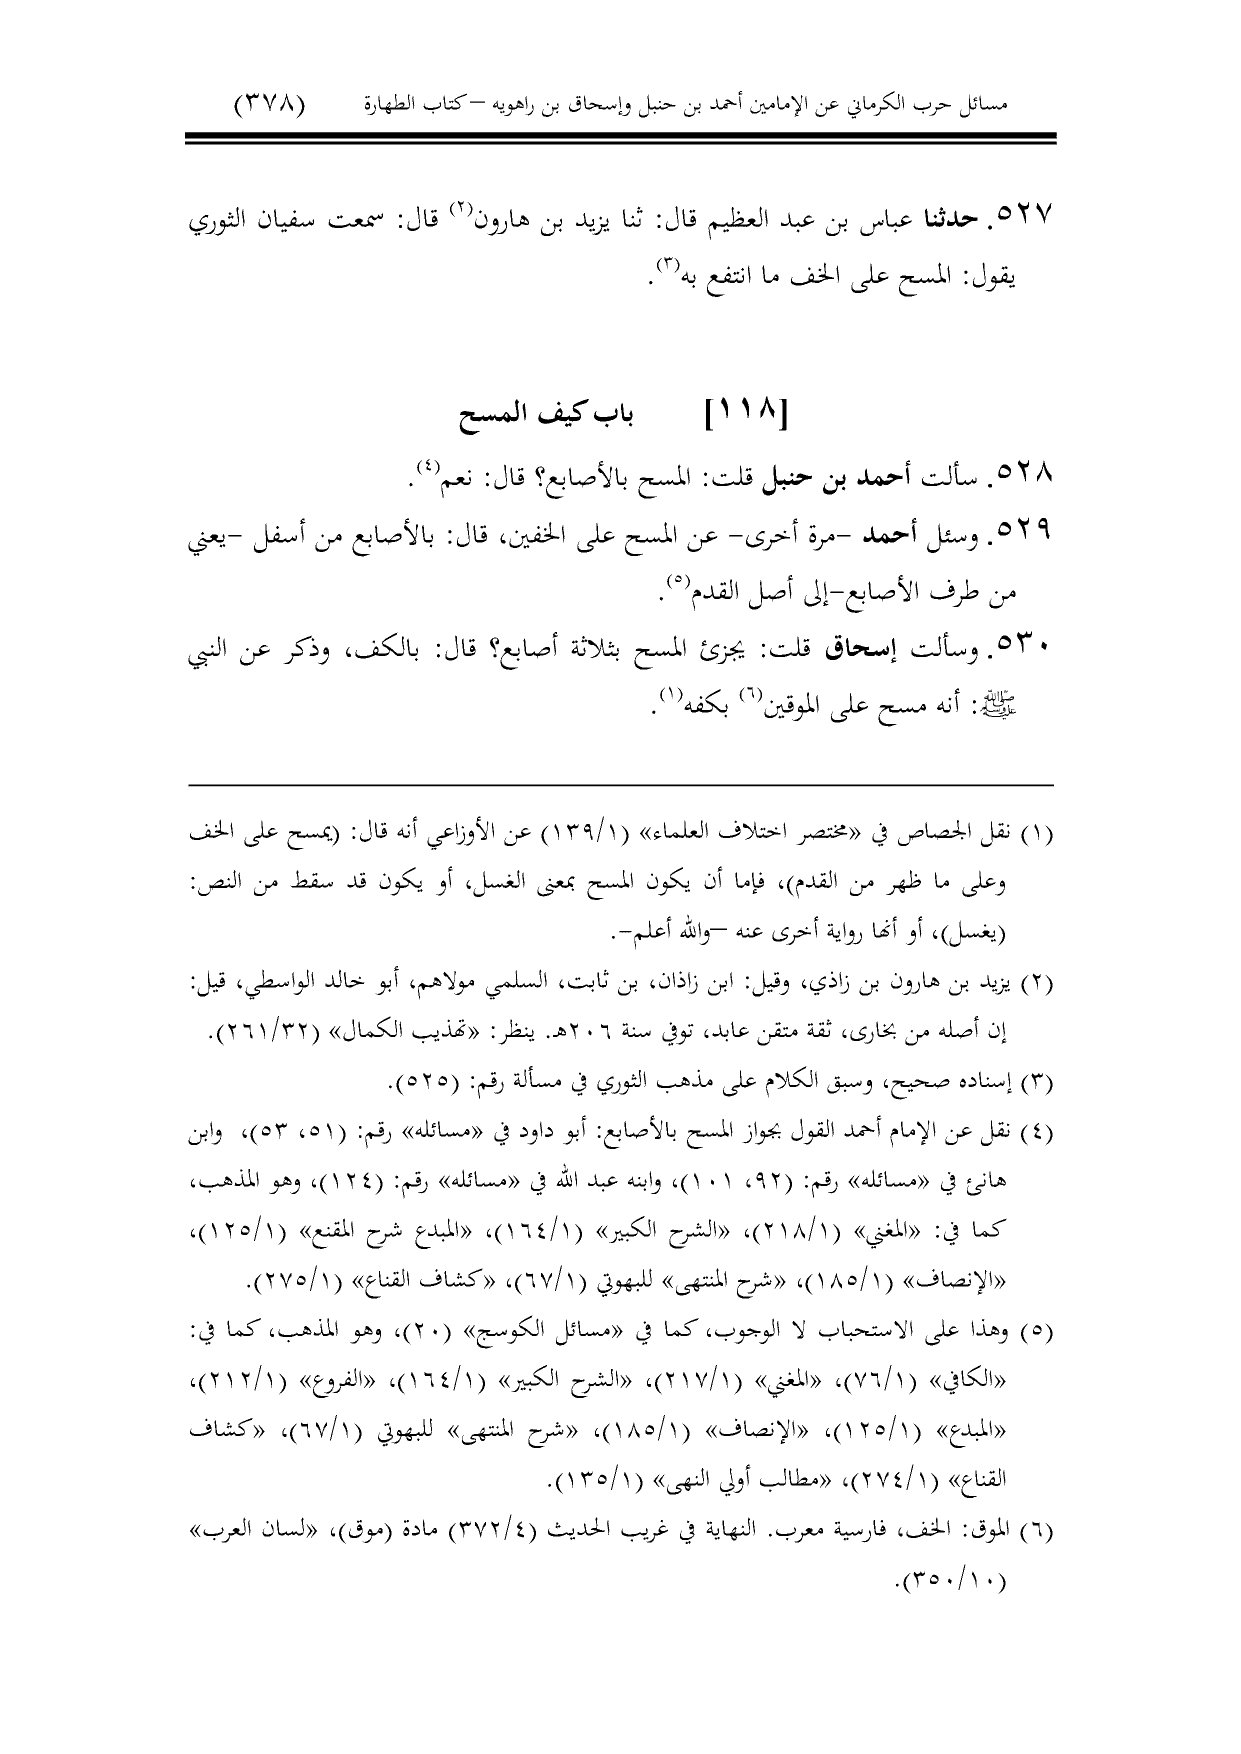 مسائل حرب الكرماني عن الإمامين أحمد بن حنبل وإسحاق بن راهويه –كتاب الطهارة (٣٧٨)
٥٢٧. حدثنا عباس بن عبد العظيم قال: ثنا يزيد بن هارون(٢) قال: سمعت سفيان الثوري
يقول: المسح على الخف ما انتفع به(٣).
[١١٨] باب كيف المسح
٥٢٨. سألت أحمد بن حنبل قلت: المسح بالأصابع؟ قال: نعم(٤).
٥٢٩. وسئل أحمد -مرة أخرى- عن المسح على الخفين، قال: بالأصابع من أسفل -يعني
من طرف الأصابع-إلى أصل القدم(٥).
٥٣٠. وسألت إسحاق قلت: يجزئ المسح بثلاثة أصابع؟ قال: بالكف، وذكر عن النبي
ﷺ: أنه مسح على الموقين(٦) بكفه(١).
(١) نقل الجصاص في «مختصر اختلاف العلماء» (١٣٩/١) عن الأوزاعي أنه قال: (يمسح على الخف
وعلى ما ظهر من القدم)، فإما أن يكون المسح بمعنى الغسل، أو يكون قد سقط من النص:
(يغسل)، أو أنها رواية أخرى عنه –والله أعلم-.
(٢) يزيد بن هارون بن زاذي، وقيل: ابن زاذان، بن ثابت، السلمي مولاهم، أبو خالد الواسطي، قيل:
إن أصله من بخارى، ثقة متقن عابد، توفي سنة ٢٠٦هـ. ينظر: «تهذيب الكمال» (٢٦١/٣٢).
(٣) إسناده صحيح، وسبق الكلام على مذهب الثوري في مسألة رقم: (٥٢٥).
(٤) نقل عن الإمام أحمد القول بجواز المسح بالأصابع: أبو داود في «مسائله» رقم: (٥١، ٥٣)، وابن
هانئ في «مسائله» رقم: (٩٢، ١٠١)، وابنه عبد الله في «مسائله» رقم: (١٢٤)، وهو المذهب،
كما في: «المغني» (٢١٨/١)، «الشرح الكبير» (١٦٤/١)، «المبدع شرح المقنع» (١٢٥/١)،
«الإنصاف» (١٨٥/١)، «شرح المنتهى» للبهوتي (٦٧/١)، «كشاف القناع» (٢٧٥/١).
(٥) وهذا على الاستحباب لا الوجوب، كما في «مسائل الكوسج» (٢٠)، وهو المذهب، كما في:
«الكافي» (٧٦/١)، «المغني» (٢١٧/١)، «الشرح الكبير» (١٦٤/١)، «الفروع» (٢١٢/١)،
«المبدع» (١٢٥/١)، «الإنصاف» (١٨٥/١)، «شرح المنتهى» للبهوتي (٦٧/١)، «كشاف
القناع» (٢٧٤/١)، «مطالب أولي النهى» (١٣٥/١).
(٦) الموق: الخف، فارسية معرب. النهاية في غريب الحديث (٣٧٢/٤) مادة (موق)، «لسان العرب»
(٣٥٠/١٠).